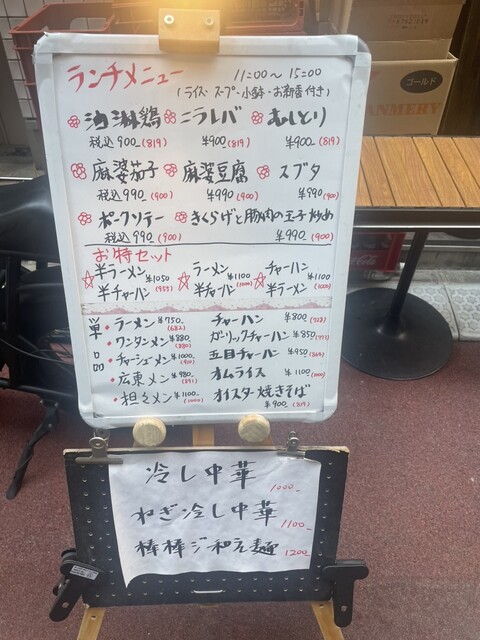 ランチメニュー 11:00〜15:00
(ライス・スープ・小鉢・お新香付き)
油淋鶏 ニラレバ むしとり
税込 900 (819) ¥900 (819) ¥900 (819)
麻婆茄子 麻婆豆腐 スブタ
税込 990 (900) ¥990 (900) ¥990 (900)
ポークソテー きくらげと豚肉の玉子炒め
税込 990 (900) ¥990 (900)
お特セット
半ラーメン ¥1050 ラーメン ¥1100 チャーハン ¥1100
半チャーハン (955) 半チャーハン (1000) 半ラーメン (1000)
単品
・ラーメン ¥750 (682) チャーハン ¥800
・ワンタンメン ¥880 ガーリックチャーハン ¥850
・チャーシューメン ¥1000 五目チャーハン ¥950
・広東メン ¥980 (891) オムライス ¥1100 (1000)
・担々メン ¥1100 (1000) オイスター焼きそば
¥900 (819)
冷し中華
1000-
ねぎ冷し中華
1100-
棒棒ジ和え麺 1200-
ゴールド